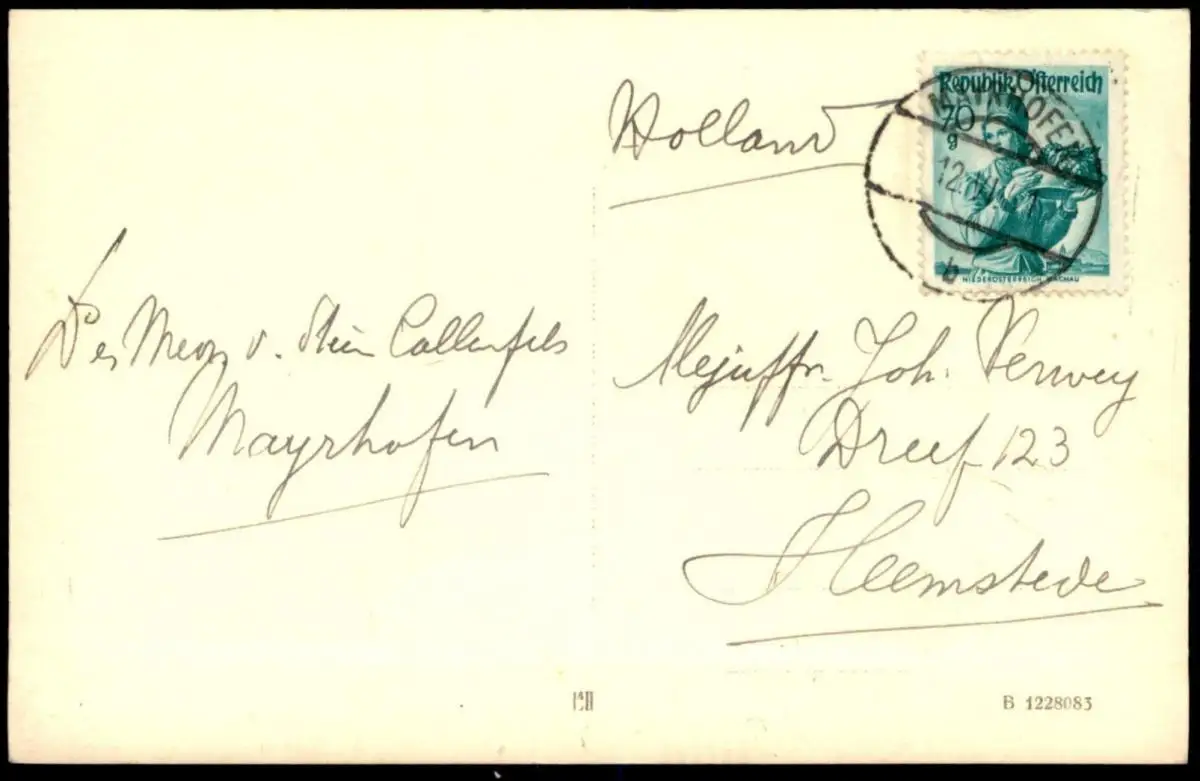 Holland
Republik Österreich
70
g
MAYRHOFEN
12.
b
NIEDERÖSTERREICH, WACHAU
v. Stein Callenfels
Mayrhofen
Mejuffr. Joh. Verwey
Dreef 123
Heemstede
B 1228083